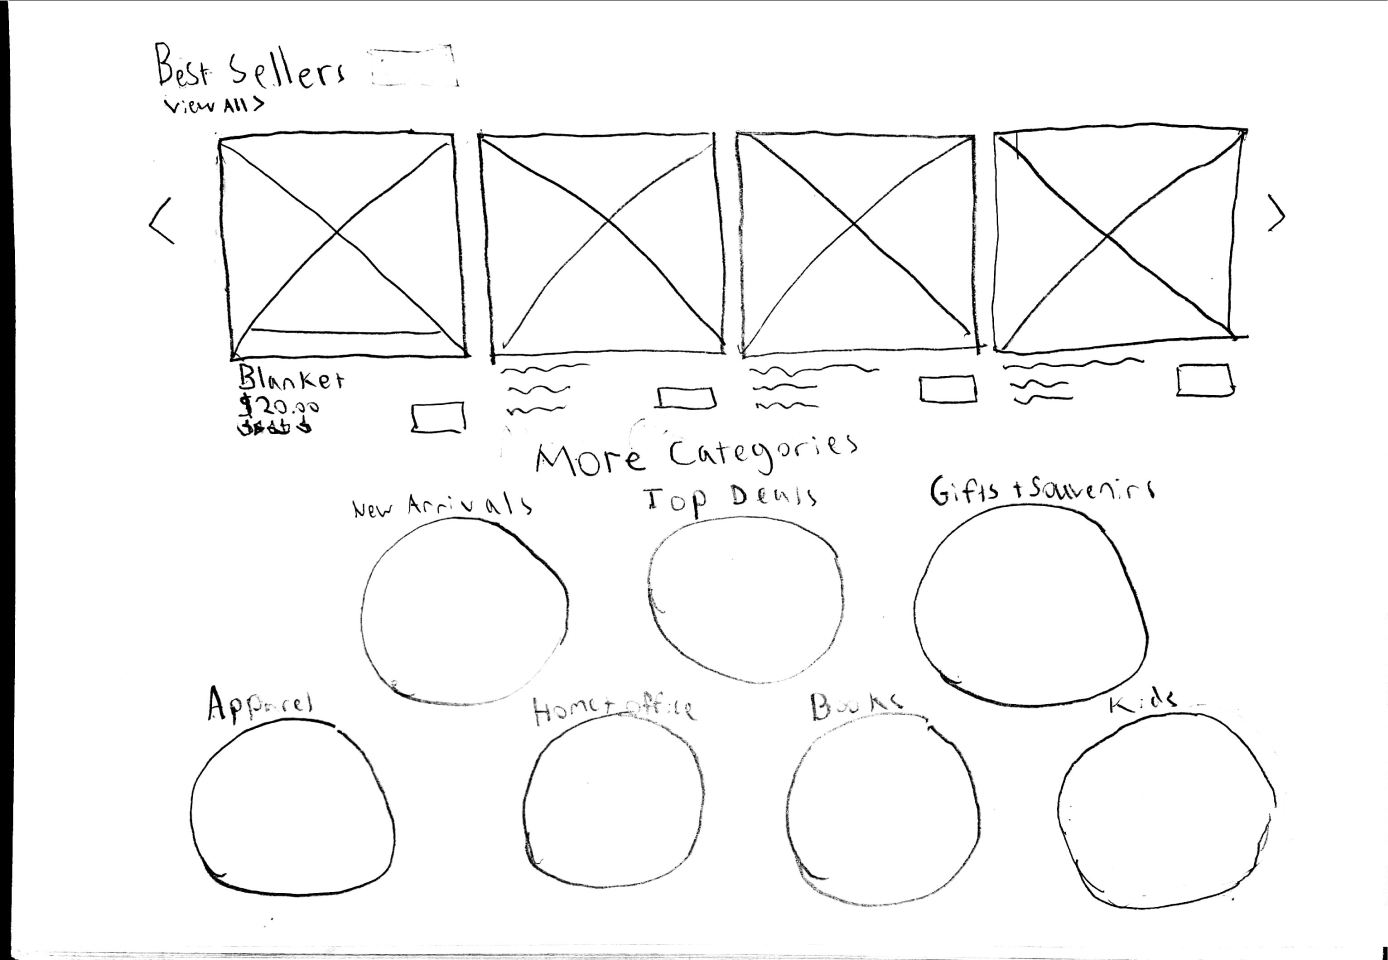 Best Sellers
View All >
<
>
Blanket
$20.00
More Categories
New Arrivals
Top Deals
Gifts + Souvenirs
Apparel
Home + office
Books
Kids